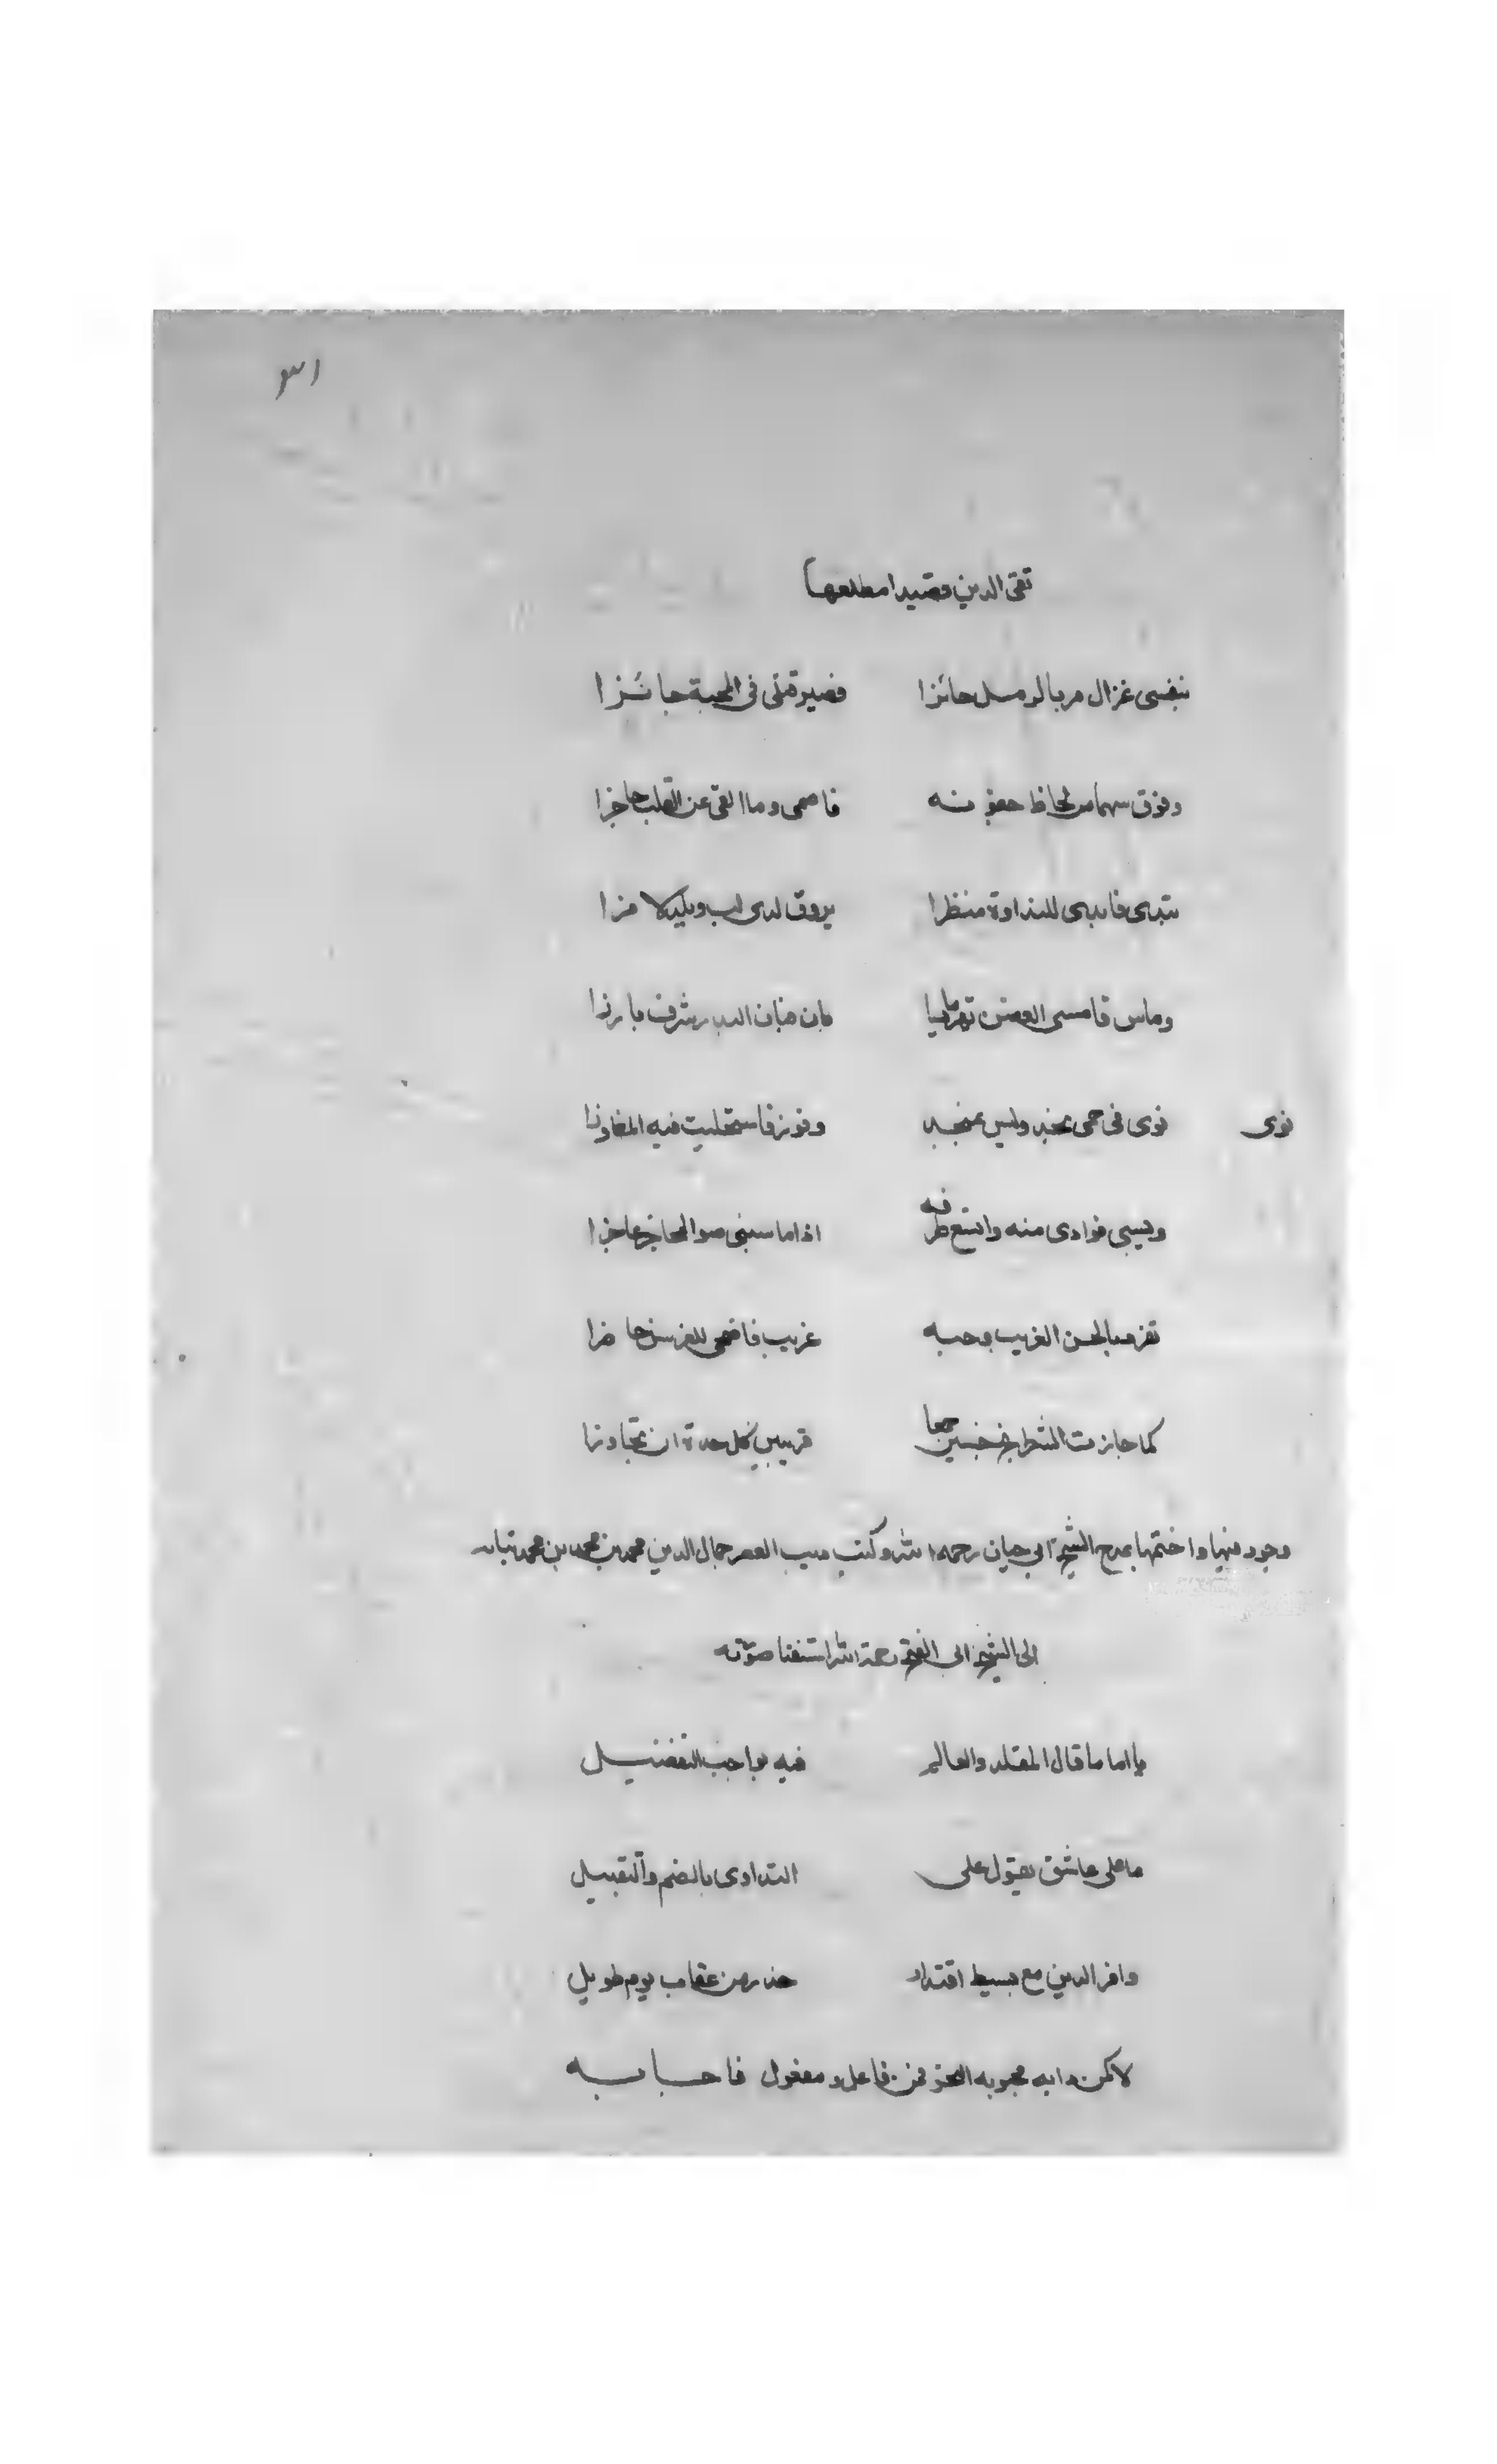 ٣١
تقى الدين قصيدا مطلعها
بنفسى غزال مر بالرمل جائزا فصير قتلى فى المحبة جائزا
وفوق سهما من لحاظ جفونه فاصمى وما القى عن القلب حاجزا
تبدى فابدى للبداوة منظرا يروق لدى لب
وماس قامسى الغصن بان فبان البدر يشرف بارزا
نوى ثوى فى حمى نجد وليس بمنجد وفوز فاستحليت فيه المفاوزا
ويسبى فوادى منه وانتبع طرفه اذا ما سبنى عاجزا
تفرد بالحسن الغريب وحبه غريب فاضحى
كما حازت الشطرنج خنسين جمعا قريبين كل حدة ان تجاوزا
وجود فيها واختتمها بمدح الشيخ ابى حيان رحمه الله وكتب اديب العصر جمال الدين محمد بن محمد بن محمد نباته
الى الشيخ ابى الفتح رحمة الله استفتا صورته
يا اماما قال المقلد والعالم فيه بواجب التفضيل
ما على عاشق يقول على التداوى بالضم والتقبيل
وافر الدين مع بسيط اقتدار حذر من عقاب يوم طويل
لاكن دابه محبوبه النحو فمن فاعل ومفعول فاجابه